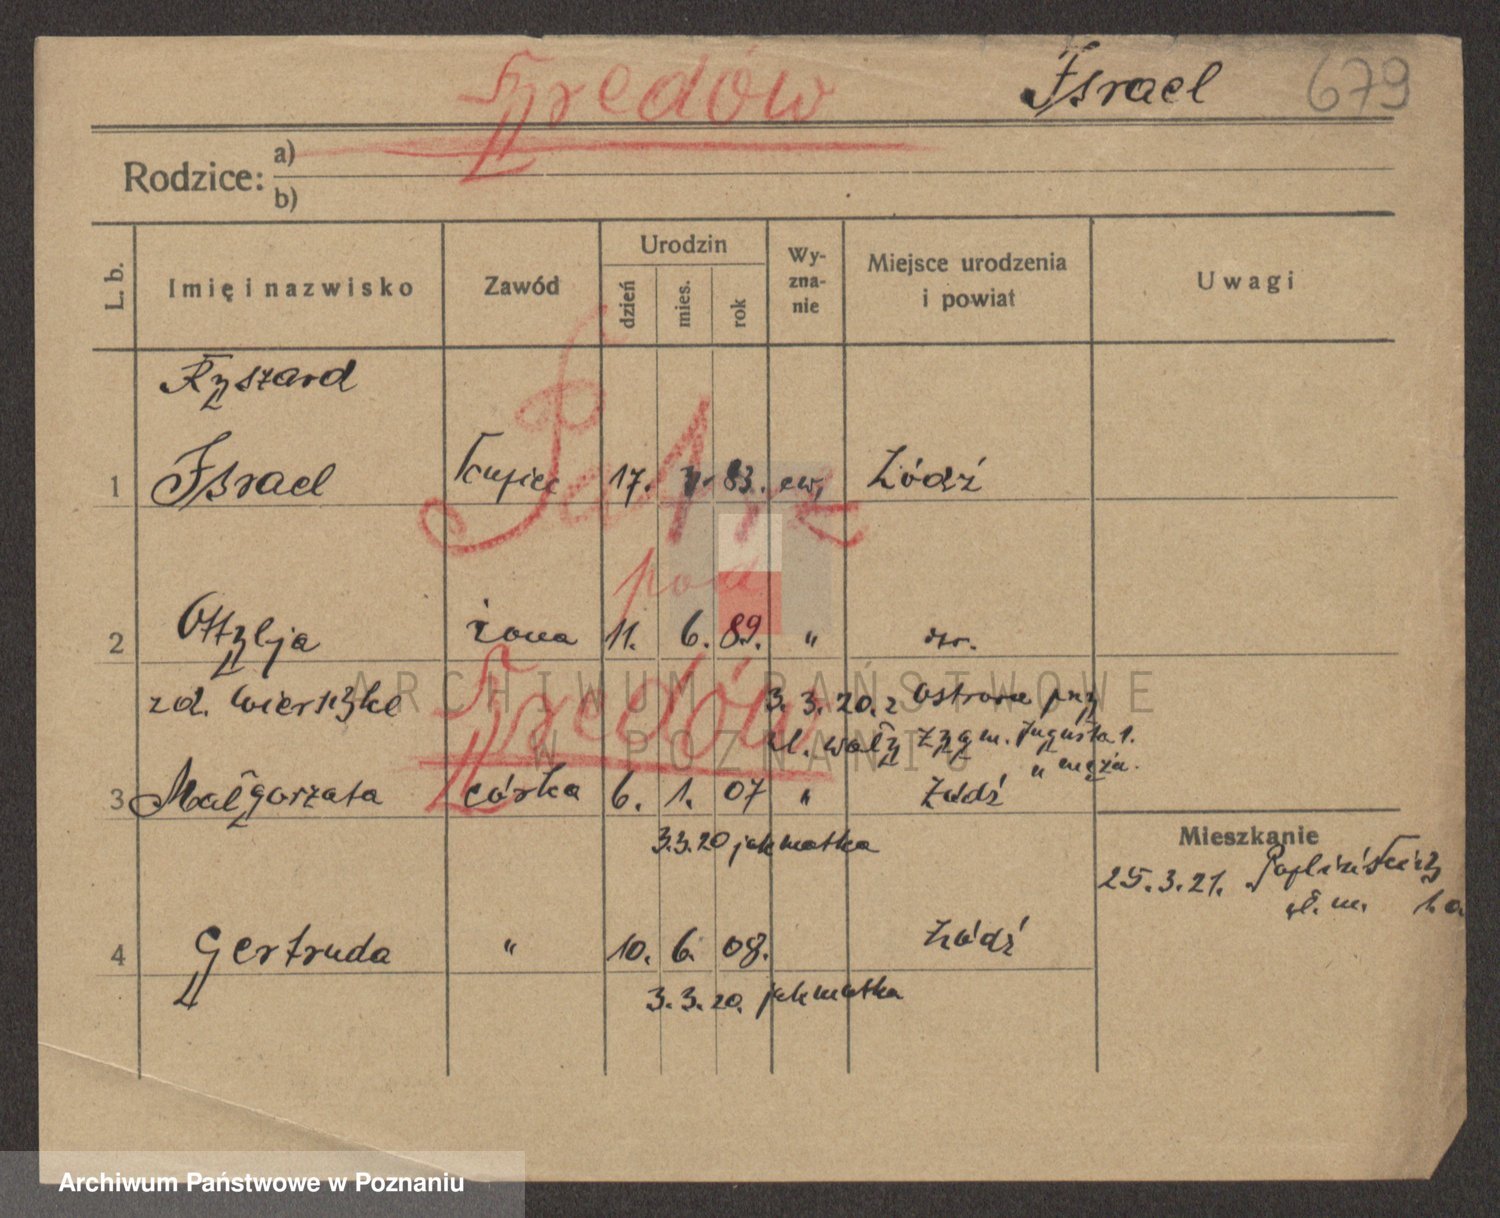 Fredów Israel 679
Rodzice: a)
b)
L. b. Imię i nazwisko Zawód Urodzin dzień mies. rok Wy-zna-nie Miejsce urodzenia i powiat Uwagi
Ryszard
1 Israel kupiec 17. 7. 83. ew, Łódź
Patrz
pod
2 Ottylja żona 11. 6. 89. "
Fredów
zd. 3. 3. 20. z Ostrowa przy
ul. wały Zygm. Augusta 1.
" męża.
3 Małgorzata córka 6. 1. 07 " Łódź
3.3.20 jak matka
Mieszkanie
25.3.21.
4 Gertruda " 10. 6. 08. Łódź
3.3.20. jak matka
ARCHIWUM PAŃSTWOWE
W POZNANIU
Archiwum Państwowe w Poznaniu